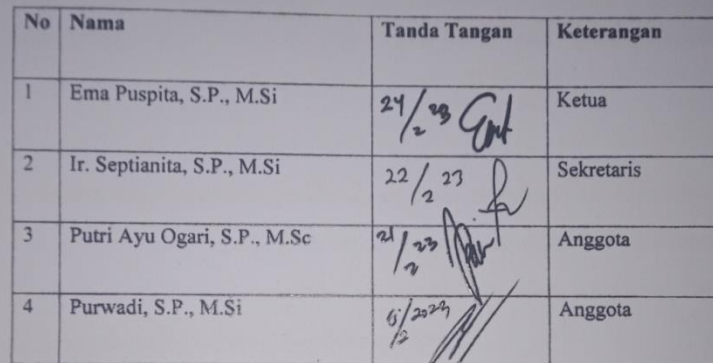 No Nama Tanda Tangan Keterangan
1 Ema Puspita, S.P., M.Si 24/2 23 Ketua
2 Ir. Septianita, S.P., M.Si 22/2 23 Sekretaris
3 Putri Ayu Ogari, S.P., M.Sc 21/2 23 Anggota
4 Purwadi, S.P., M.Si /2 2023 Anggota